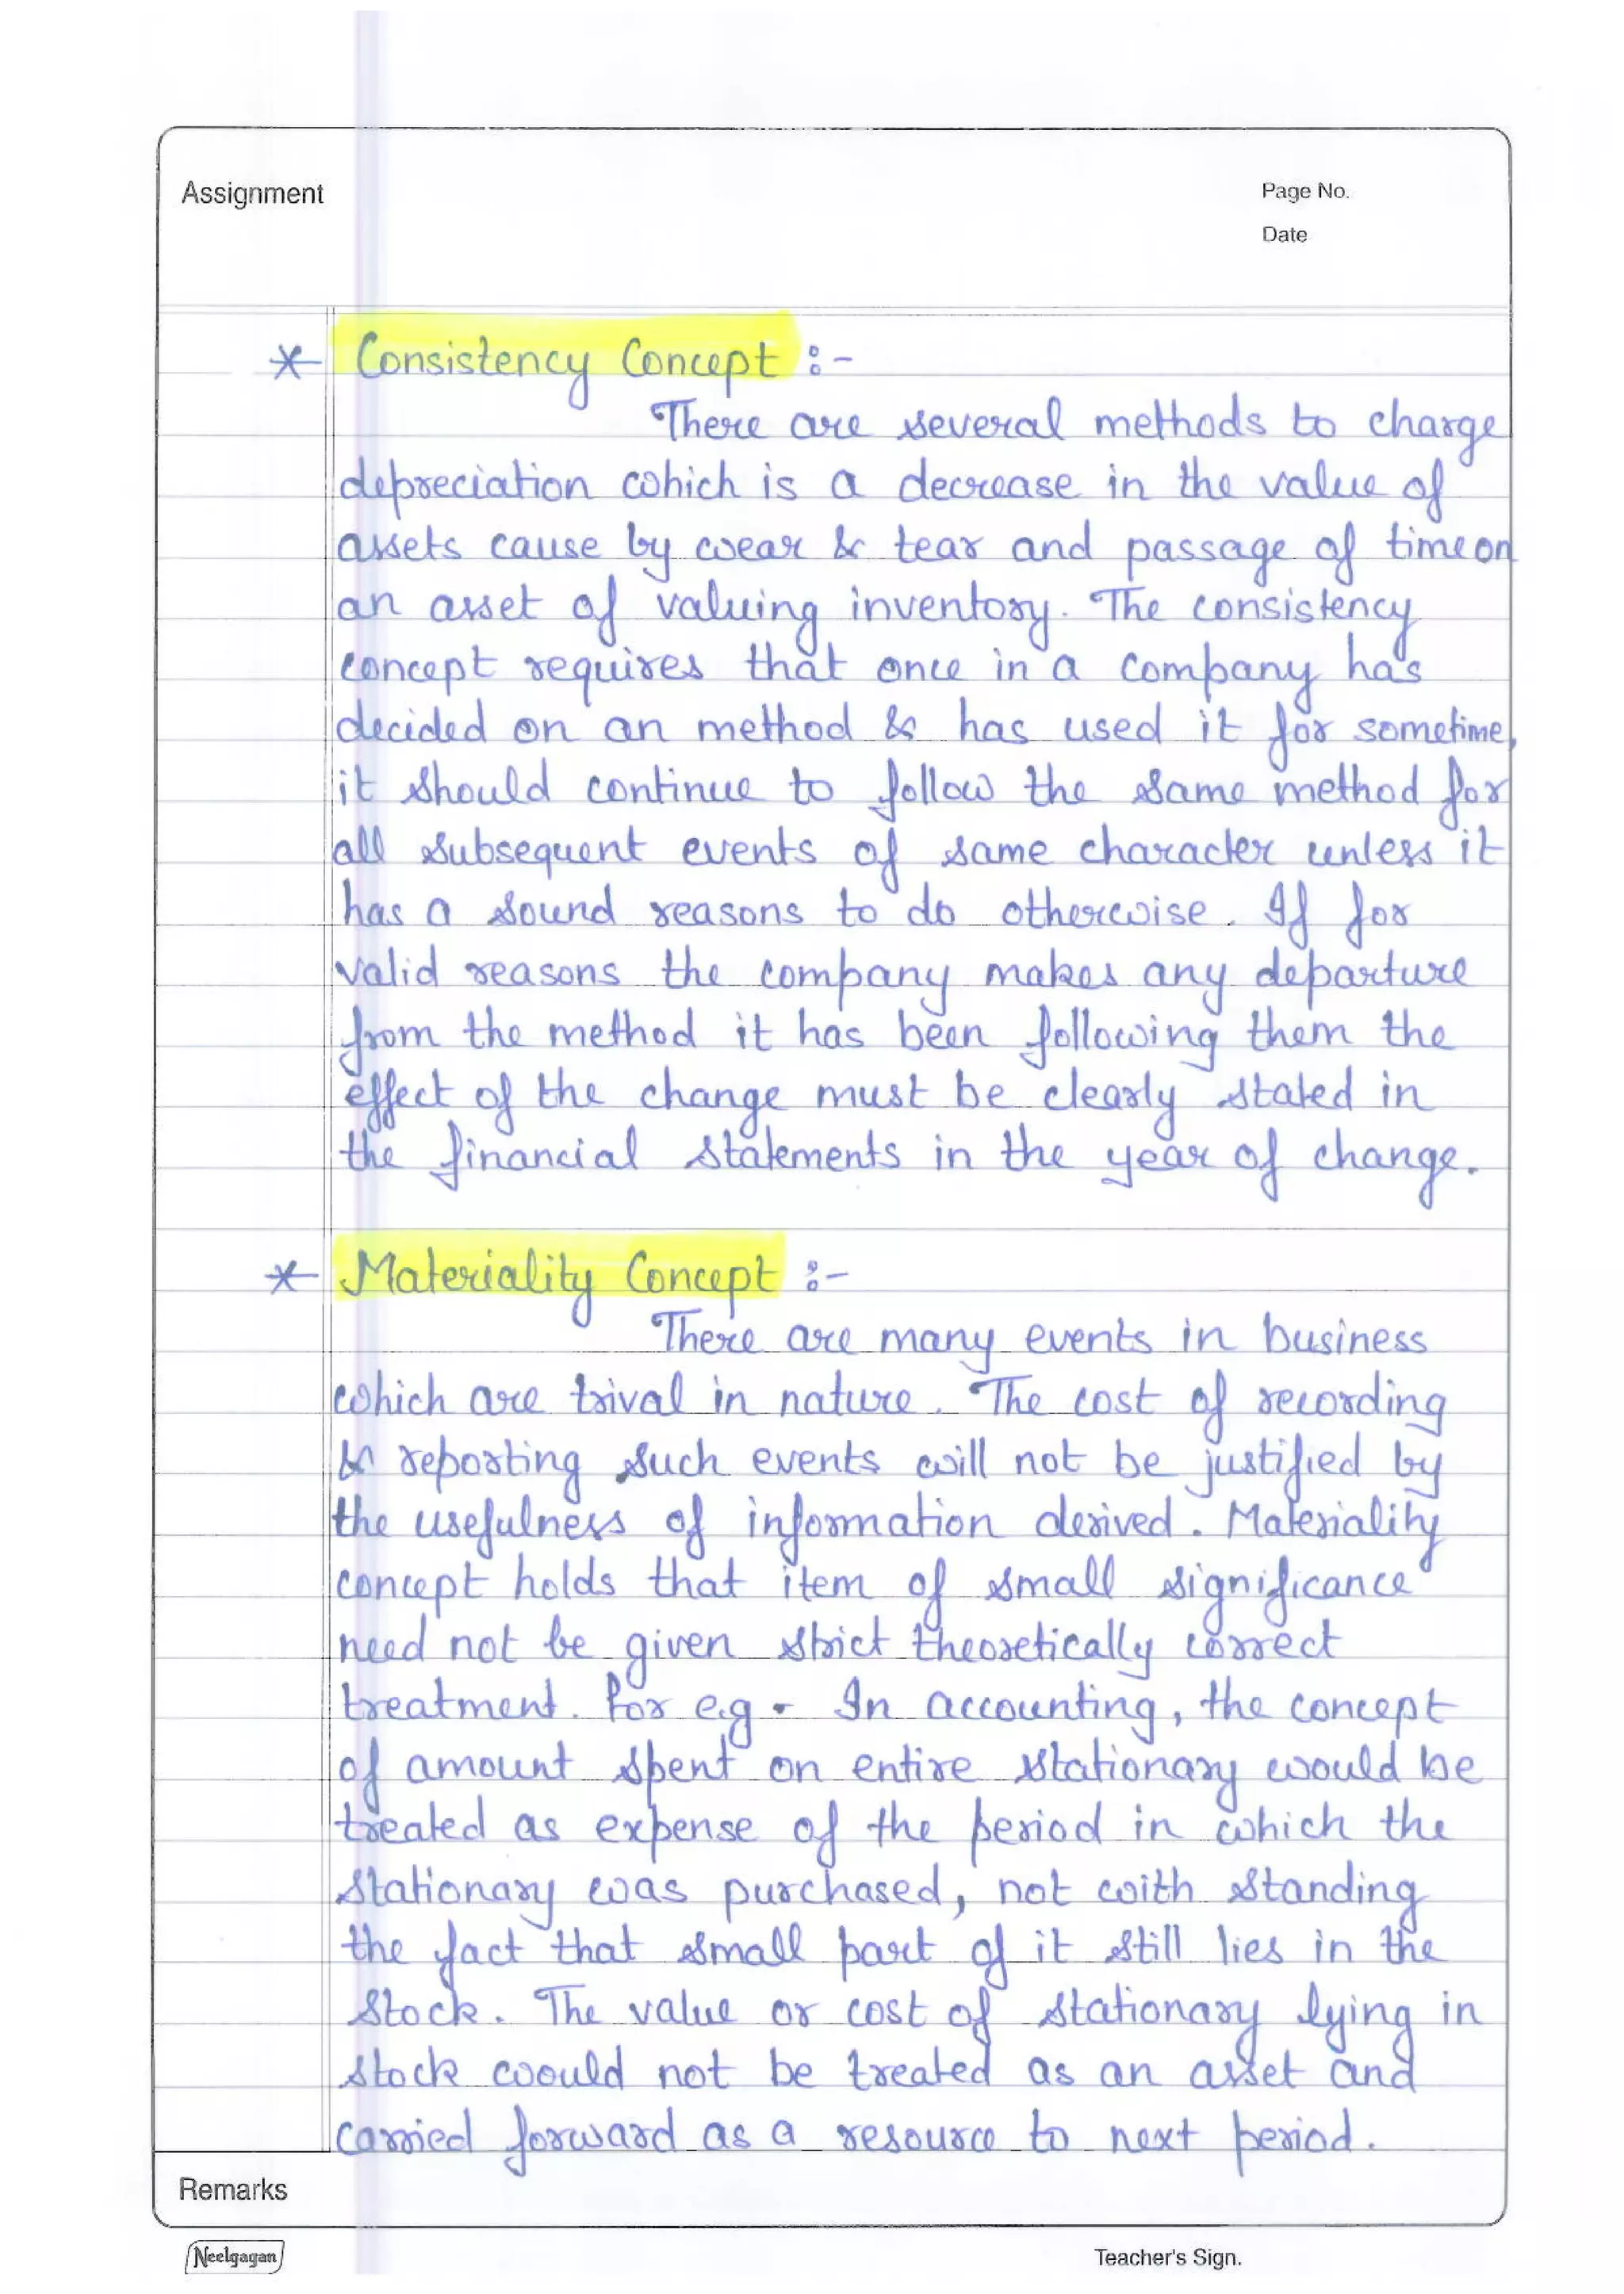 Assignment
Page No.
Date
* Consistency Concept :-
There are several methods to charge
depreciation which is a decrease in the value of
assets cause by wear & tear and passage of time on
an asset of valuing inventory. The consistency
concept requires that once in a company has
decided on an method & has used it for sometime,
it should continue to follow the same method for
all subsequent events of same character unless it
has a sound reasons to do otherwise. If for
valid reasons the company makes any departure
from the method it has been following them the
effect of the change must be clearly stated in
the financial statements in the year of change.
* Materiality Concept :-
There are many events in business
which are trival in nature. The cost of recording
& reporting such events will not be justified by
the usefulness of information derived. Materiality
concept holds that item of small significance
need not be given strict theoretically correct
treatment. For e.g - In accounting, the concept
of amount spent on entire stationary would be
treated as expense of the period in which the
stationary was purchased, not with standing
the fact that small part of it still lies in the
stock. The value or cost of stationary lying in
stock would not be treated as an asset and
carried forward as a resource to next period.
Remarks
Neelgagan
Teacher's Sign.